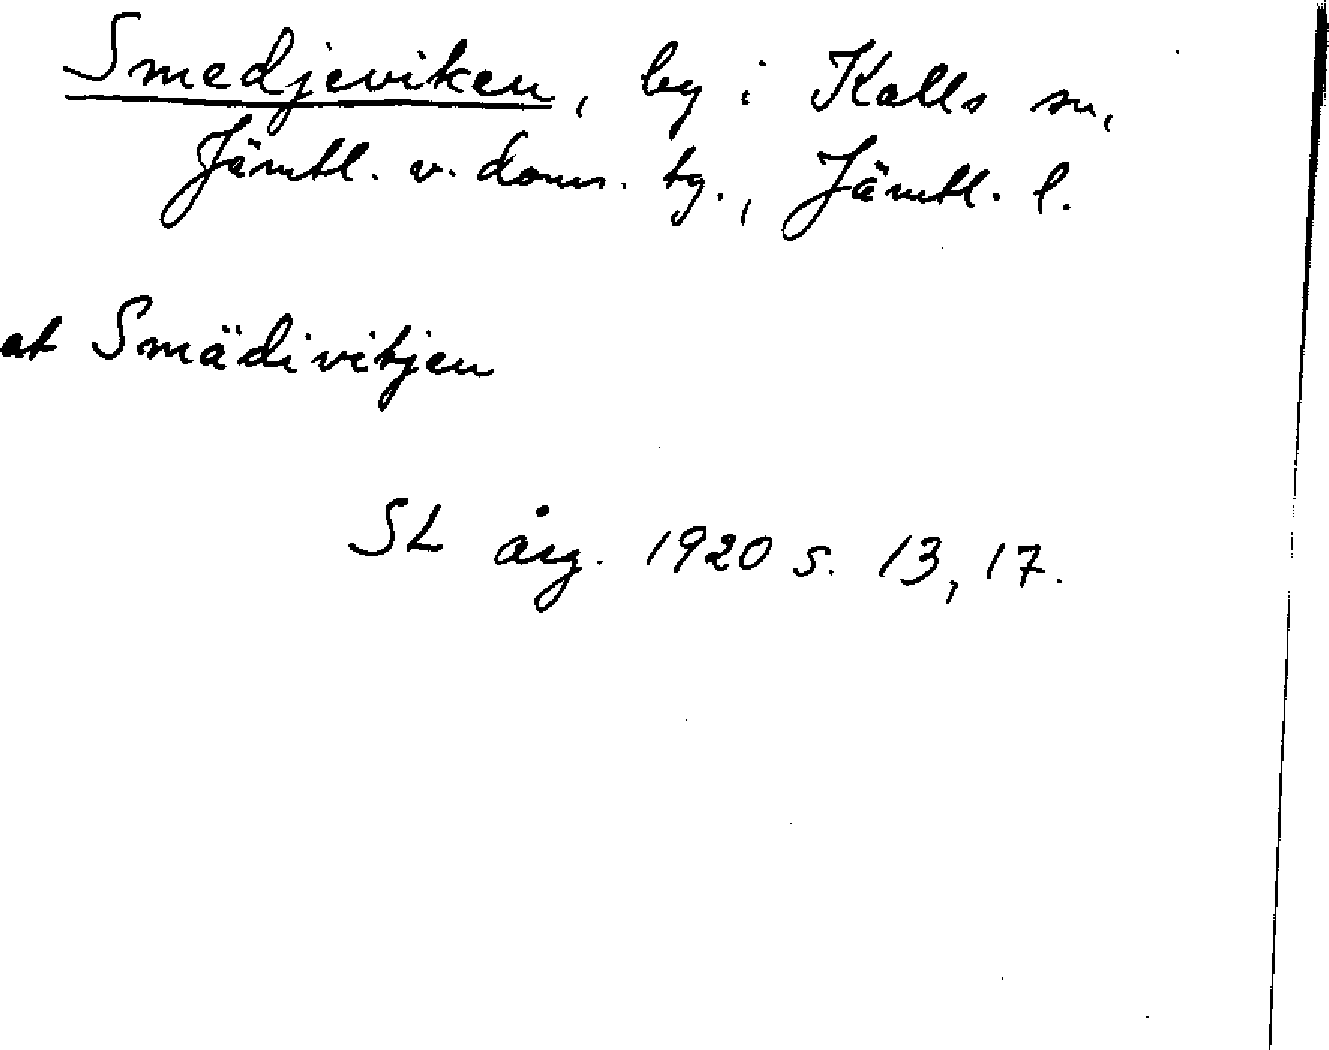 Smedjeviken, by i Kalls sn,
Jämtl. v. doms. tg., Jämtl. l.
at Smädivitjen
SL årg. 1920 s. 13, 17.